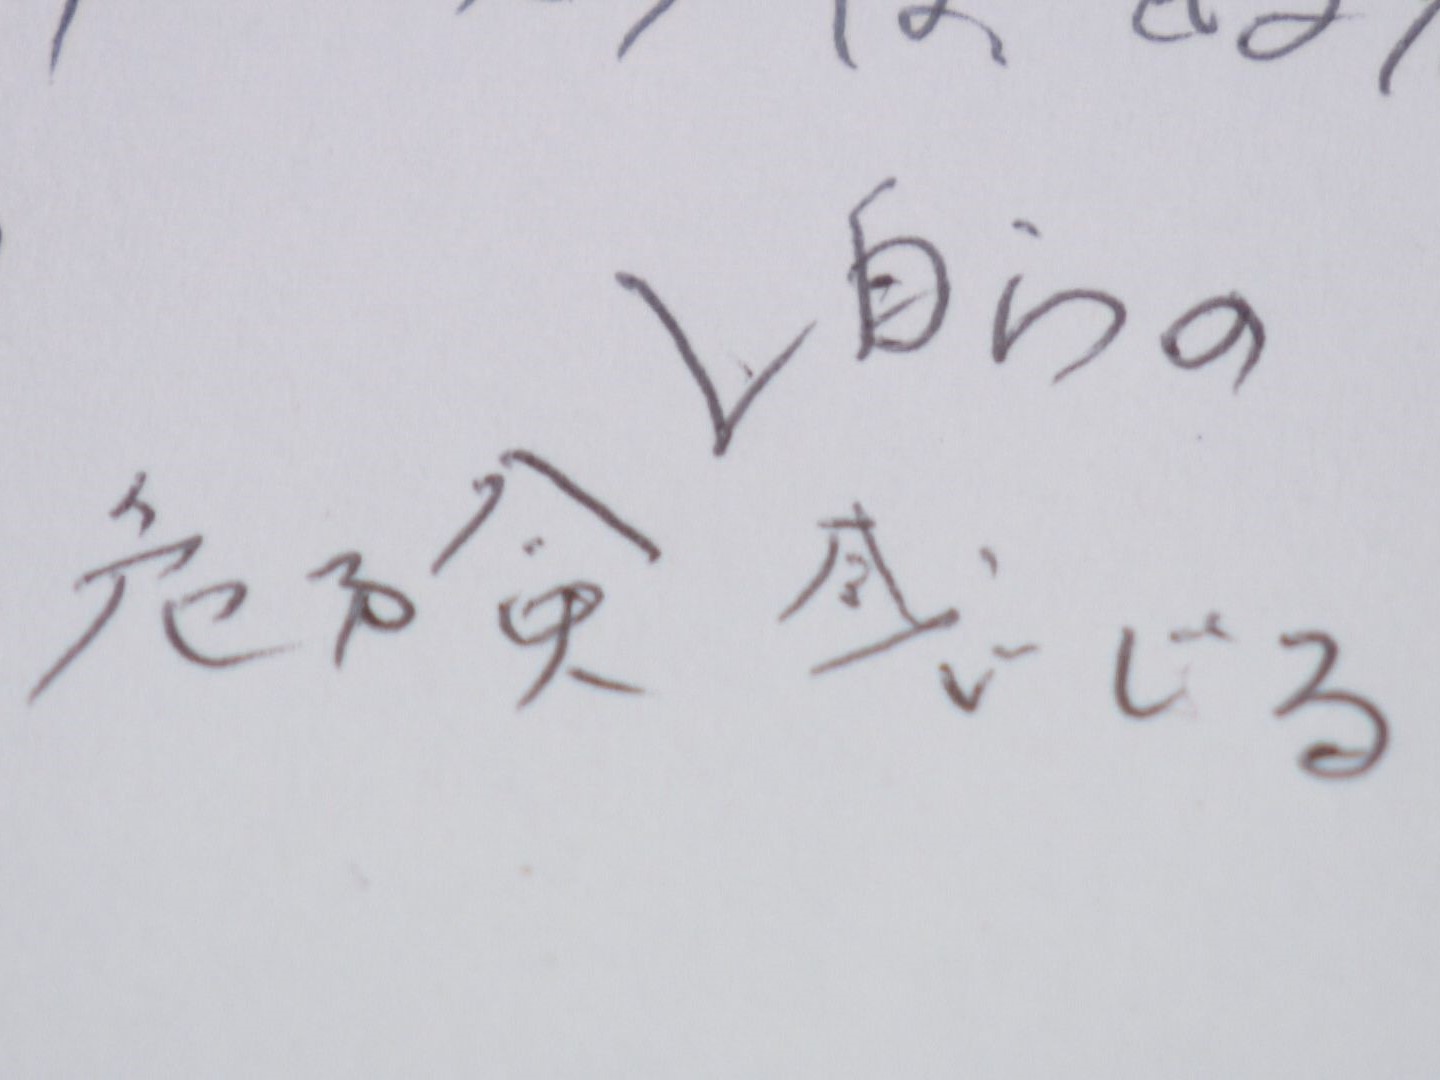 自らの
危険感じる